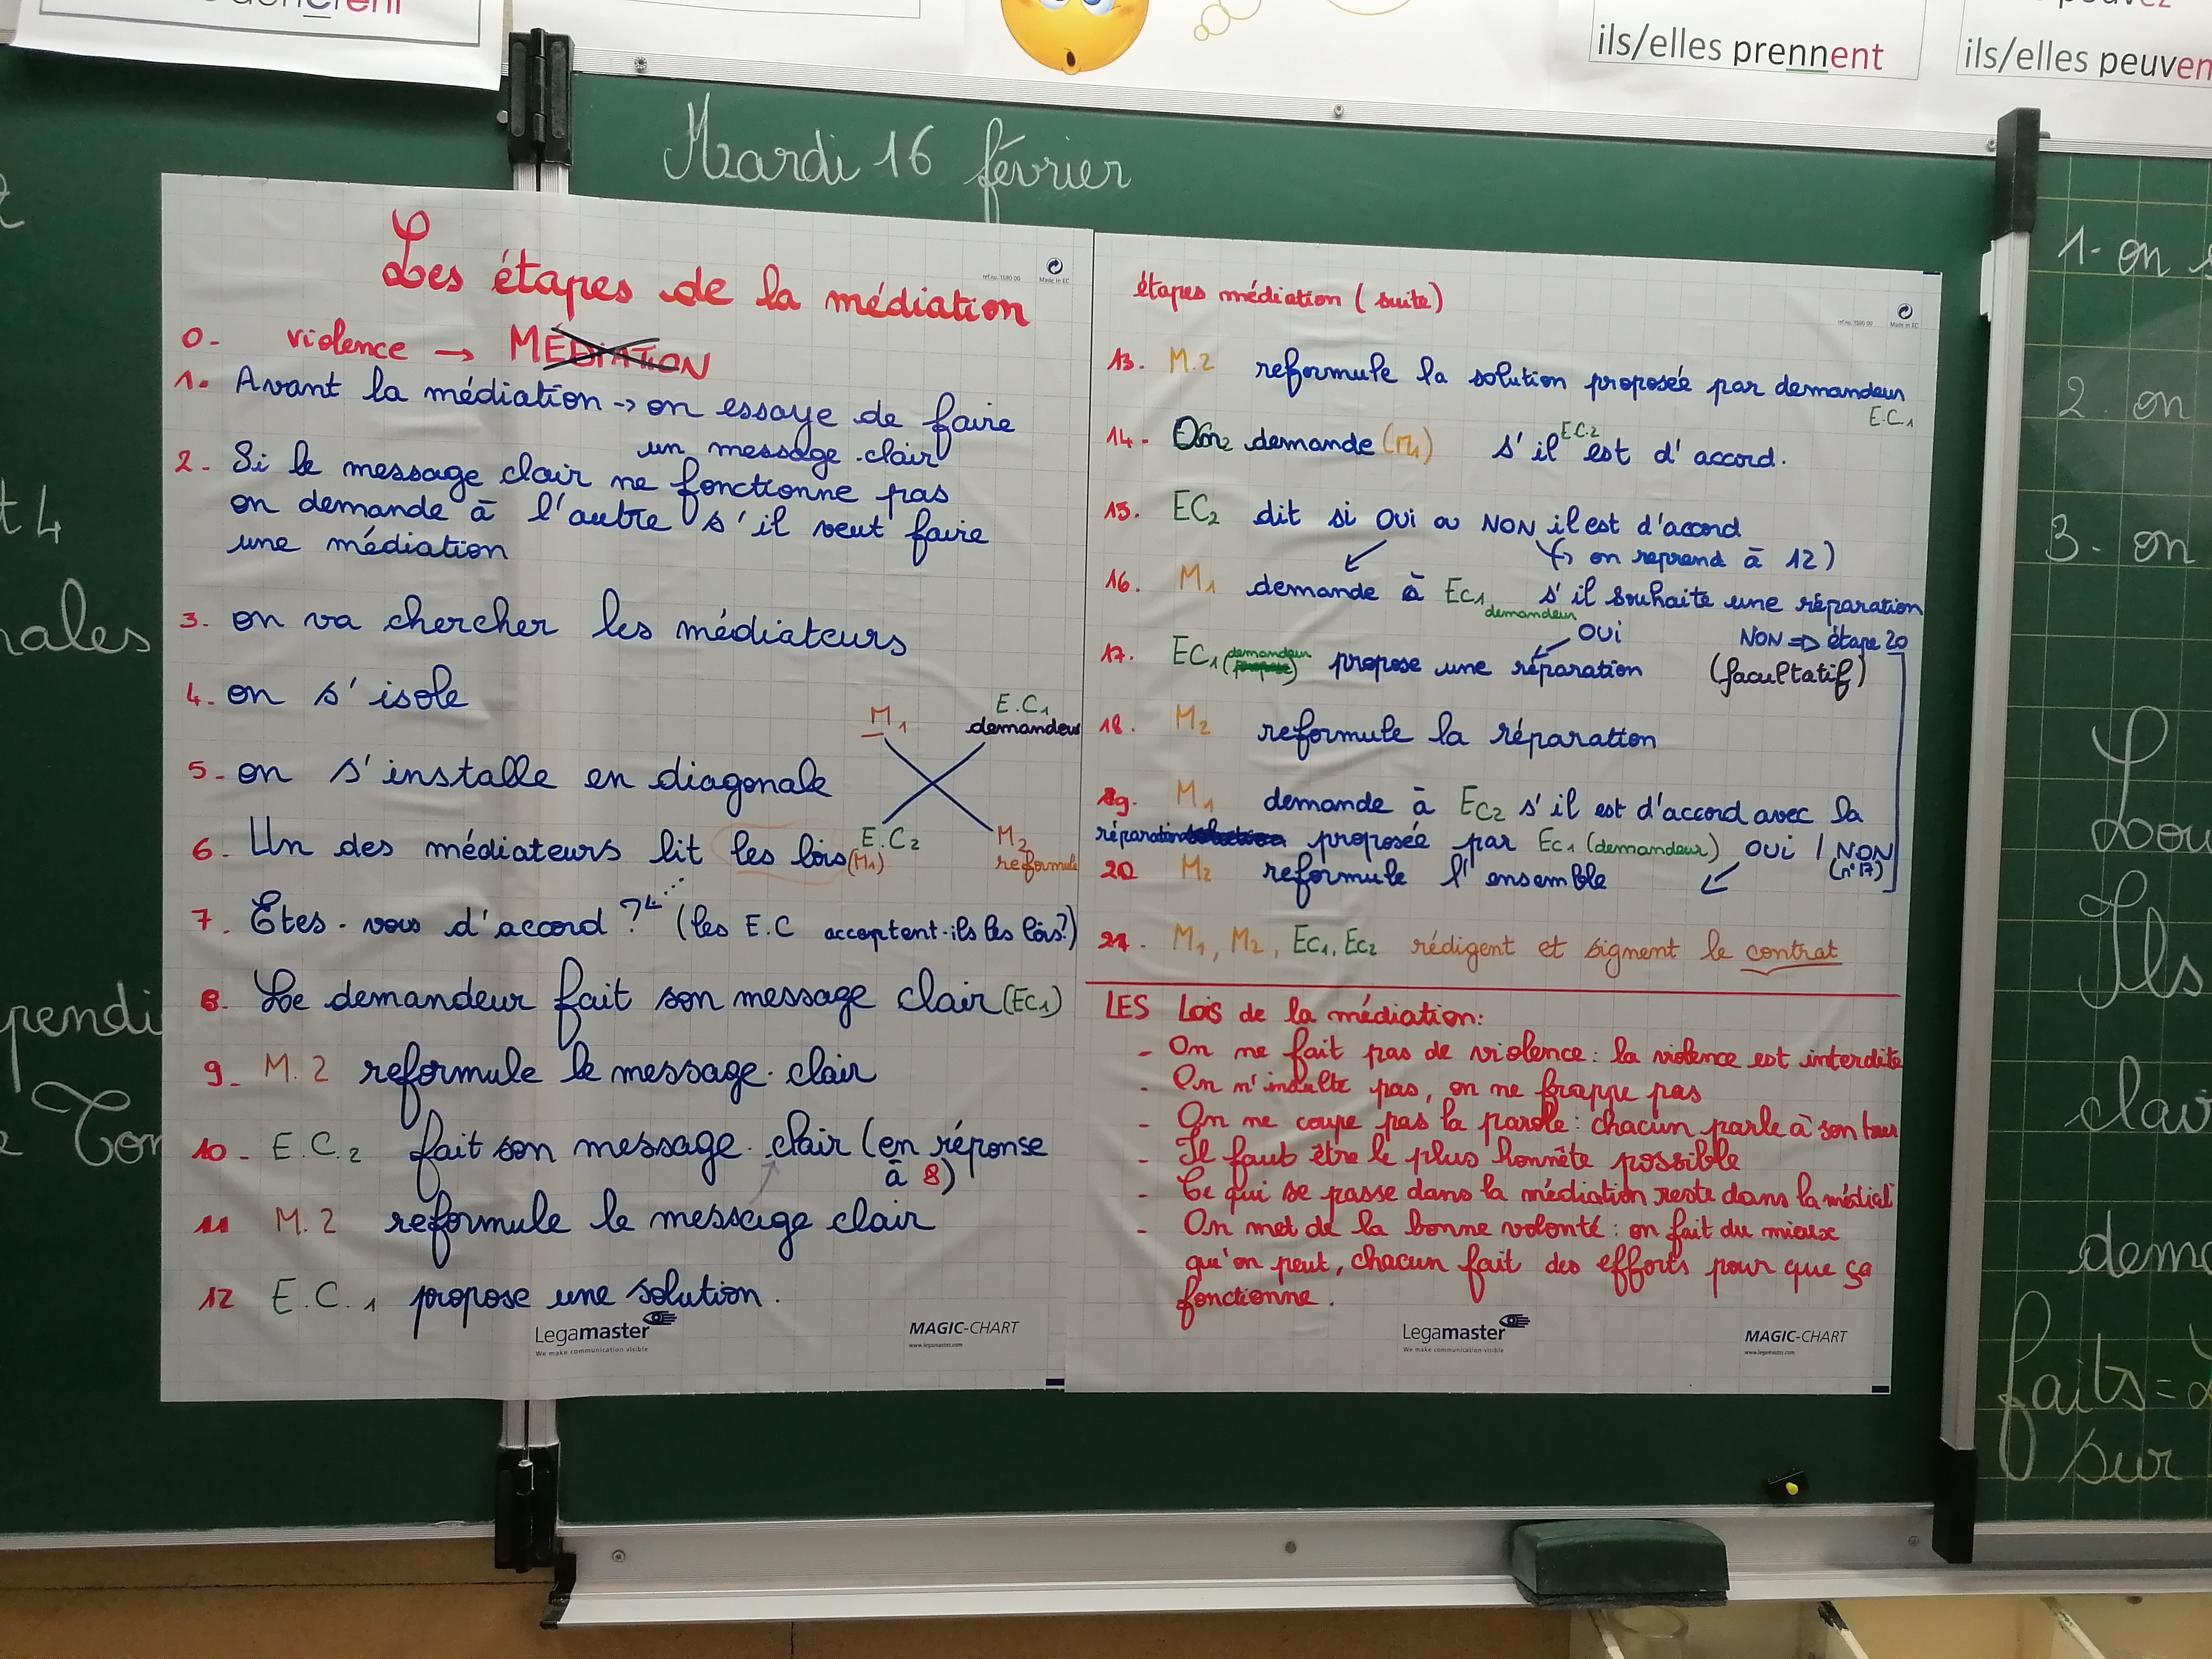 ils/elles prennent
ils/elles peuven
Mardi 16 février
Les étapes de la médiation
0- violence → MÉDIATION
1- Avant la médiation → on essaye de faire
un message clair
2- Si le message clair ne fonctionne pas
on demande à l'autre s'il veut faire
une médiation
3- on va chercher les médiateurs
4- on s'isole
M1 E.C1
demandeur
5- on s'installe en diagonale
E.C2 M2
reformule
6- Un des médiateurs lit les lois (M1)
7. Êtes-vous d'accord ? (les E.C acceptent-ils les lois?)
8. Le demandeur fait son message clair (EC1)
9- M.2 reformule le message clair
10- E.C.2 fait son message clair (en réponse
à 8)
11 M.2 reformule le message clair
12 E.C.1 propose une solution.
Legamaster
We make communication visible
MAGIC-CHART
www.legamaster.com
Made in EC
étapes médiation (suite)
Made in EC
13. M.2 reformule la solution proposée par demandeur
E.C1
14- On demande (M1) s'il E.C.2 est d'accord.
15. EC2 dit si OUI ou NON il est d'accord
on reprend à 12)
16. M1 demande à EC1 s'il souhaite une réparation
demandeur
OUI NON ⇒ étape 20
17. EC1 (demandeur) propose une réparation (facultatif)
18. M2 reformule la réparation
19. M1 demande à EC2 s'il est d'accord avec la
réparation proposée par EC1 (demandeur) OUI / NON
(n°17)
20 M2 reformule l'ensemble
21. M1, M2, EC1, EC2 rédigent et signent le contrat
LES Lois de la médiation:
- On ne fait pas de violence: la violence est interdite
- On n'insulte pas, on ne frappe pas
- On ne coupe pas la parole: chacun parle à son tour
- Il faut être le plus honnête possible
- Ce qui se passe dans la médiation reste dans la médiati
- On met de la bonne volonté: on fait du mieux
qu'on peut, chacun fait des efforts pour que ça
fonctionne.
Legamaster
We make communication visible
MAGIC-CHART
www.legamaster.com
t 4
nales
pendi
1- on
2. on
3- on
Ils
clair
faits =
sur